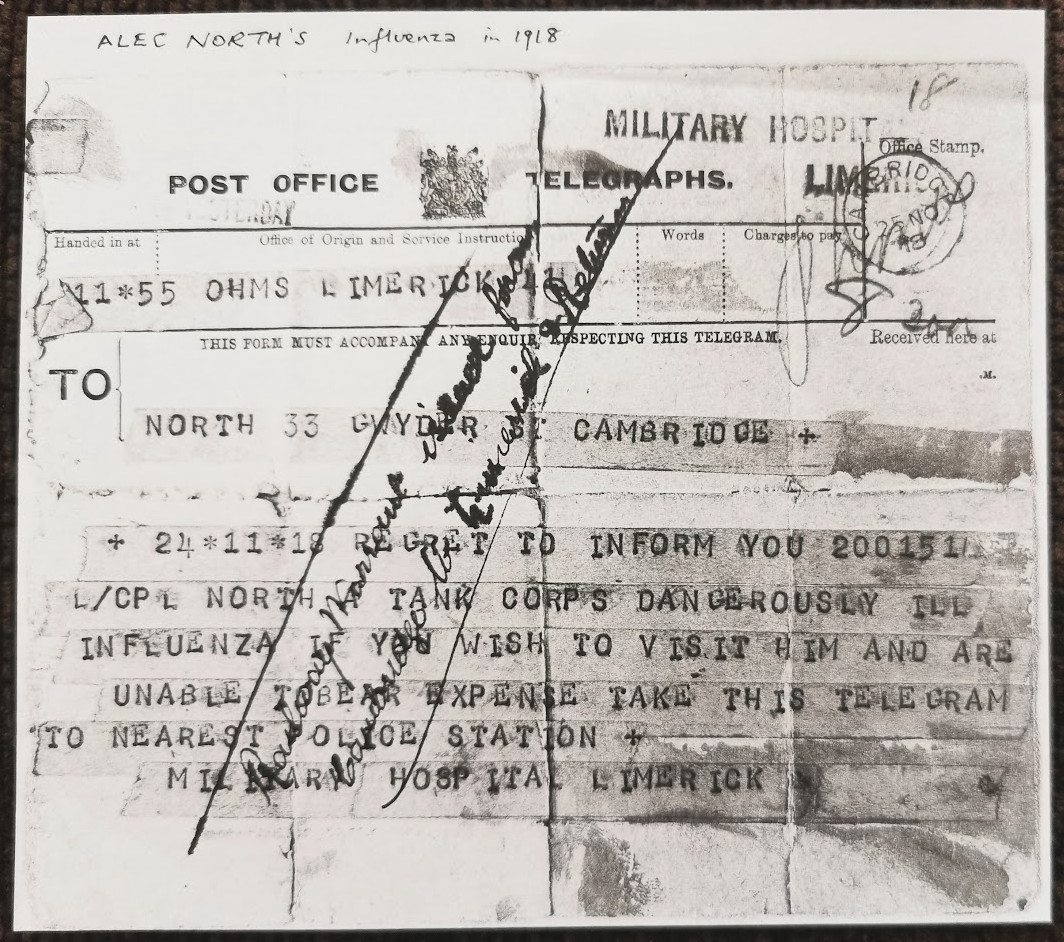 ALEC NORTH'S Influenza in 1918
18
MILITARY HOSPIT
Office Stamp.
POST OFFICE TELEGRAPHS.
LIMERICK
CAMBRIDGE
25 NO 18
Handed in at
Office of Origin and Service Instruction
Words
Charges to pay
11*55 OHMS LIMERICK 41
THIS FORM MUST ACCOMPANY ANY ENQUIRY RESPECTING THIS TELEGRAM.
Received here at
.M.
TO
NORTH 33 GWYDER ST CAMBRIDGE +
+ 24*11*18 REGRET TO INFORM YOU 200151/
L/CPL NORTH A TANK CORPS DANGEROUSLY ILL
INFLUENZA IF YOU WISH TO VISIT HIM AND ARE
UNABLE TOBEAR EXPENSE TAKE THIS TELEGRAM
TO NEAREST POLICE STATION +
MILITARY HOSPITAL LIMERICK
Railway Warrant issued from
Cambridge to Limerick & Return